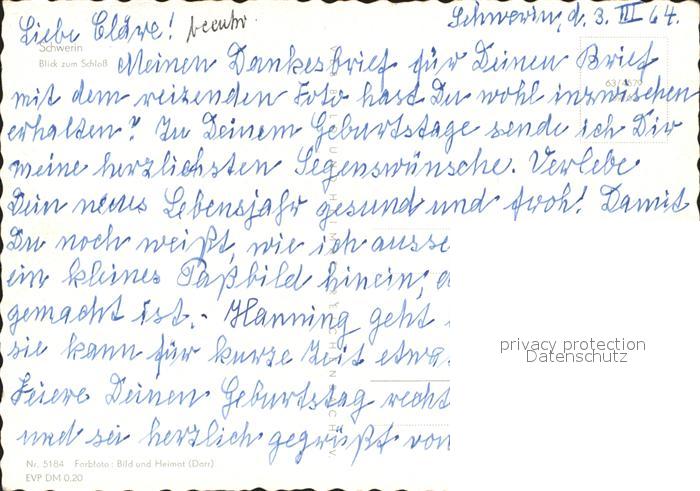 Schwerin, d. 3. III 64.
Liebe Cläre!
Schwerin
Blick zum Schloß
Meinen Dankesbrief für Deinen Brief
mit dem reizenden Foto hast Du wohl inzwischen
erhalten? Zu Deinem Geburtstage sende ich Dir
meine herzlichsten Segenswünsche. Verlebe
Dein neues Lebensjahr gesund und froh! Damit
Du noch weißt, wie ich ausse
ein kleines Paßbild hinein,
gemacht ist. - Hanning geht
sie kann für kurze Zeit etwa
Feiere Deinen Geburtstag recht
und sei herzlich gegrüßt von
privacy protection
Datenschutz
Nr. 5184 Farbfoto: Bild und Heimat (Darr)
EVP DM 0,20